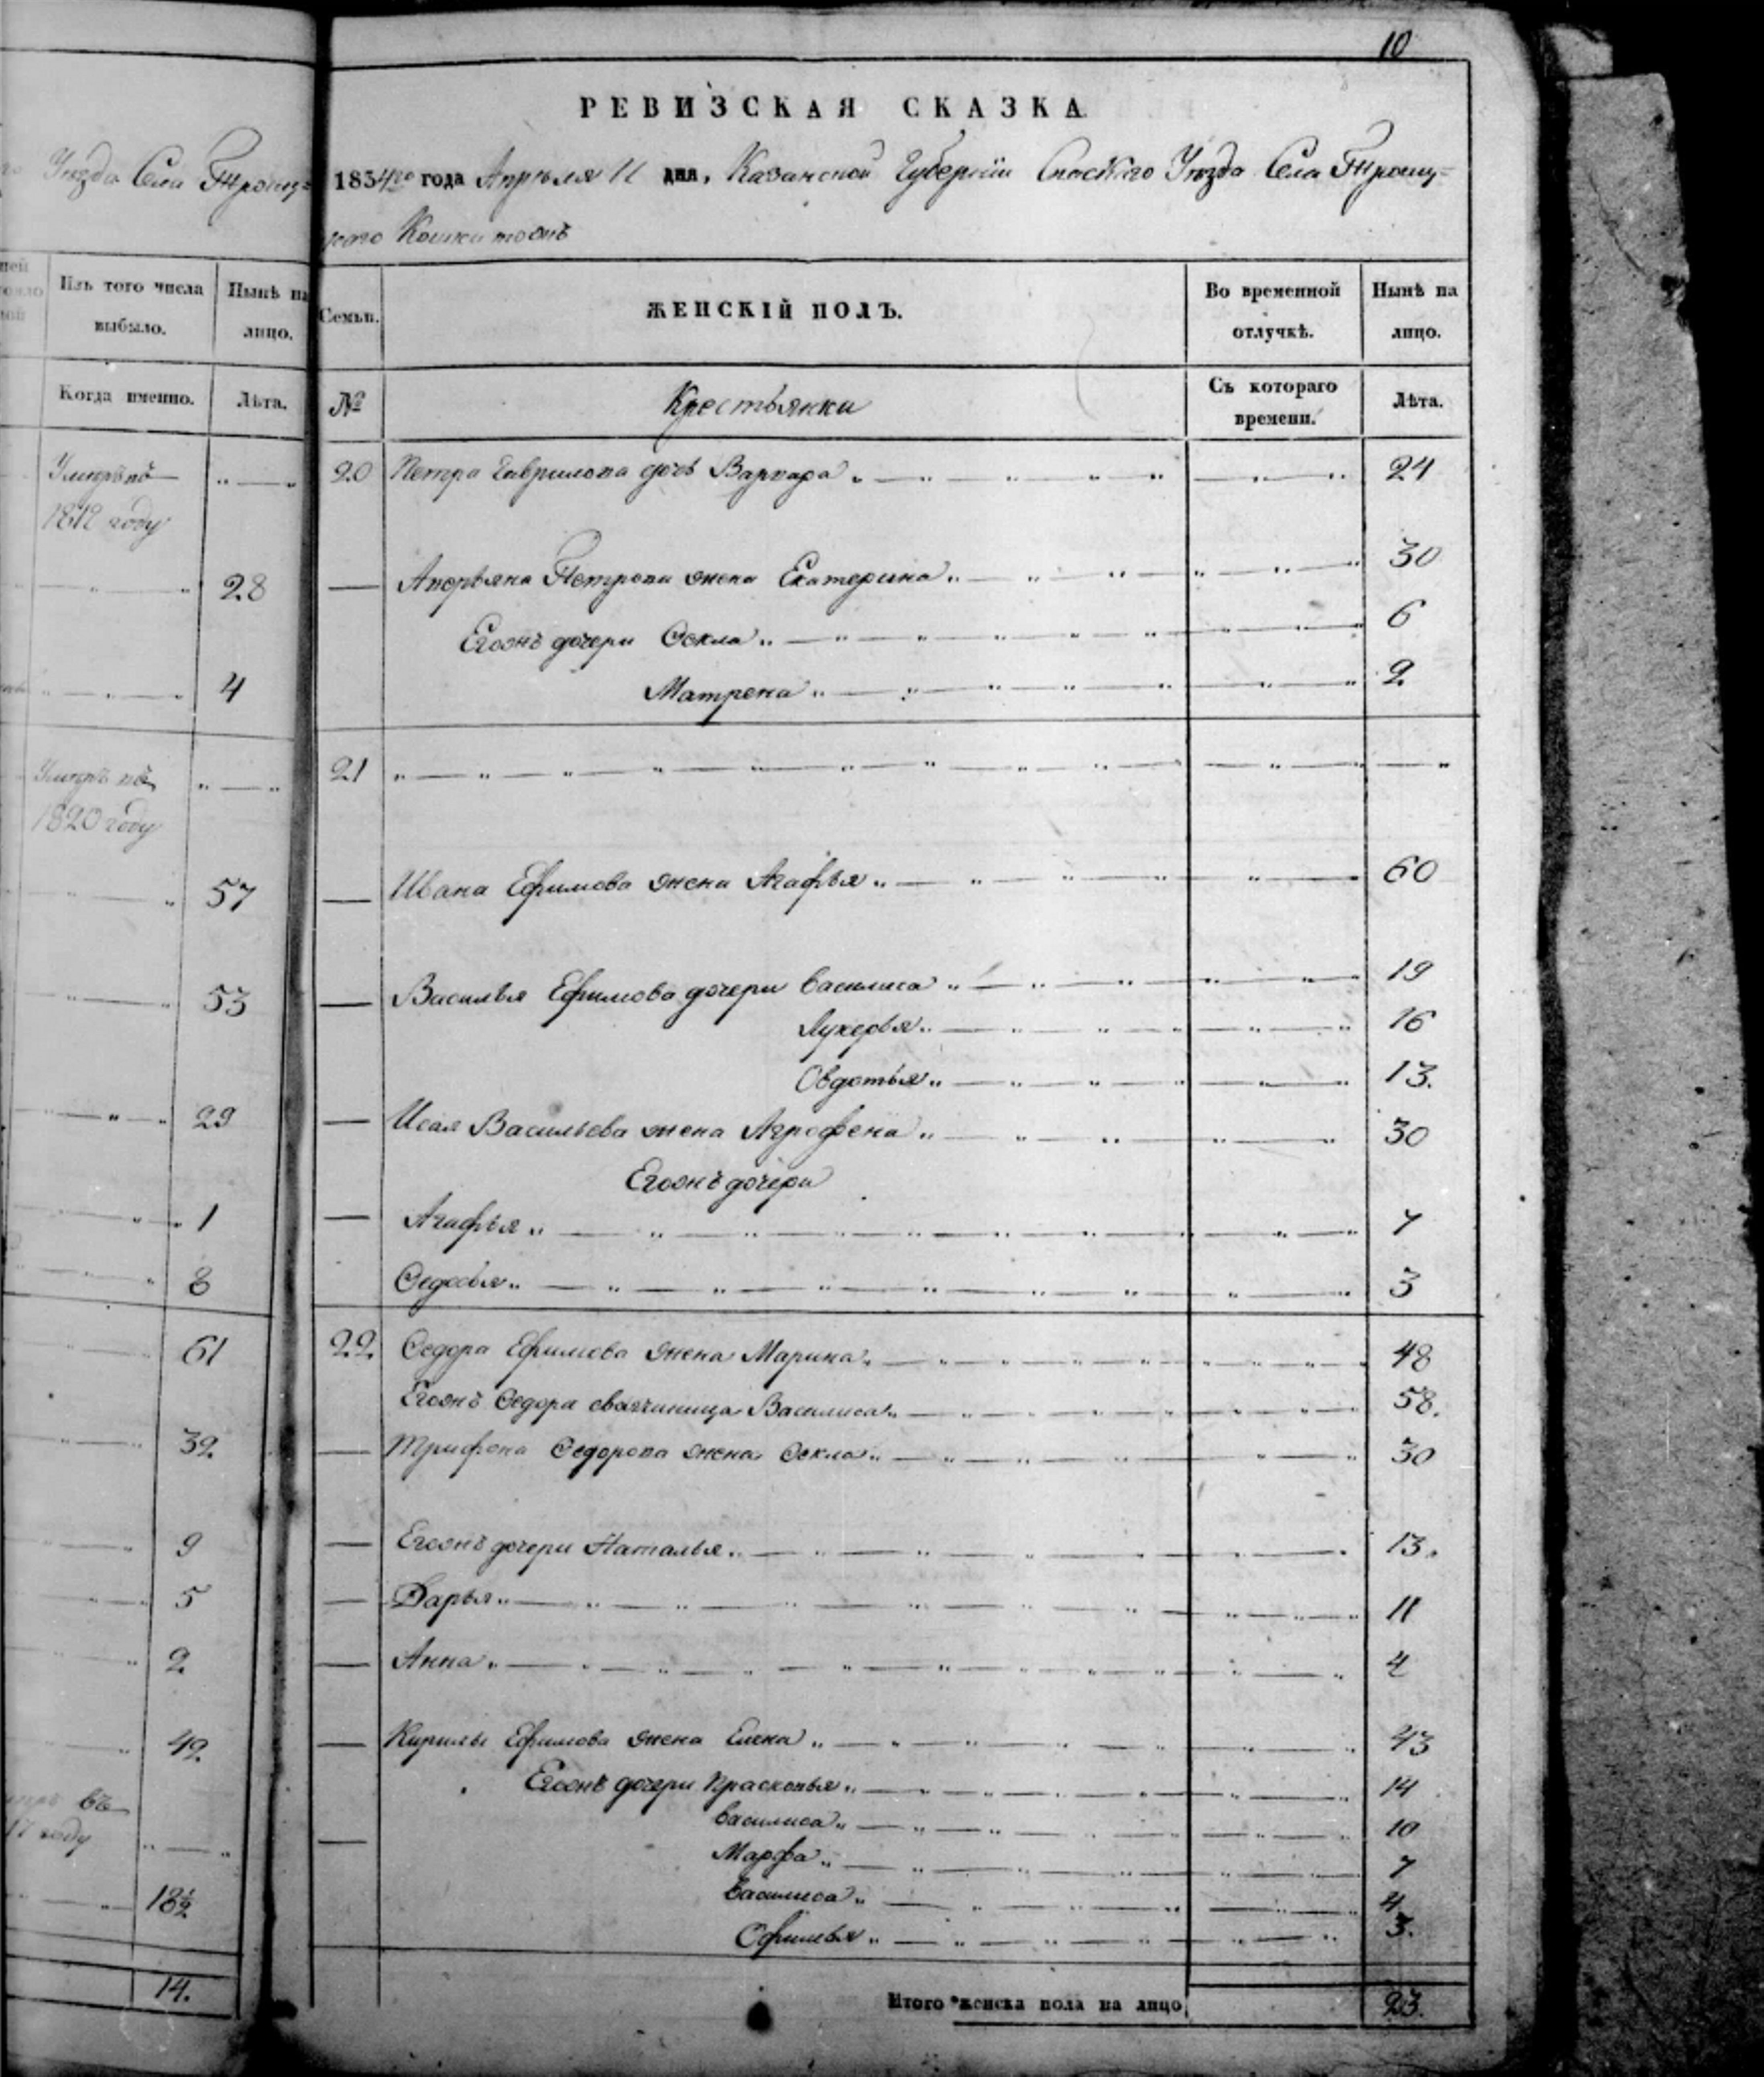 10
Уѣзда Села Троиц=
Изъ того числа выбыло.
Нынѣ на лицо.
Когда именно.
Лѣта.
Умеръ въ
1812 году
28
4
Умеръ въ
1820 году
57
53
29
1
8
61
32
9
5
2
42
въ
17 году
18½
14.
РЕВИЗСКАЯ СКАЗКА
1834го года Апреля 11 дня, Казанской Губернiи Спаскаго Уѣзда Села Троиц=
каго
Семьи.
ЖЕНСКIЙ ПОЛЪ.
Во временной отлучкѣ.
Нынѣ на лицо.
№
Крестьянки
Съ котораго времени.
Лѣта.
20 Петра Гаврилова дочь Варвара 24
— Андрѣяна Петрова жена Екатерина 30
Егоонъ дочери Ѳекла 6
Матрена 2
21
— Ивана Ефимова жена Агафья 60
— Василья Ефимова дочери Василиса 19
Лукерья 16
Овдотья 13.
— Исая Васильева жена Агрофена 30
Егоонъ дочери
— Агафья 7
Ѳедосья 3
22 Ѳедора Ефимова жена Марина 48
Егоонъ Ѳедора своячиница Василиса 58.
— Трифона Ѳедорова жена Ѳекла 30
— Егоонъ дочери Наталья 13.
— Дарья 11
— Анна 4
— Кирилы Ефимова жена Елена 43
Егоонъ дочери Прасковья 14
Василиса 10
— Марфа 7
Василиса 4
Офимья 3.
Итого женска пола на лицо 23.